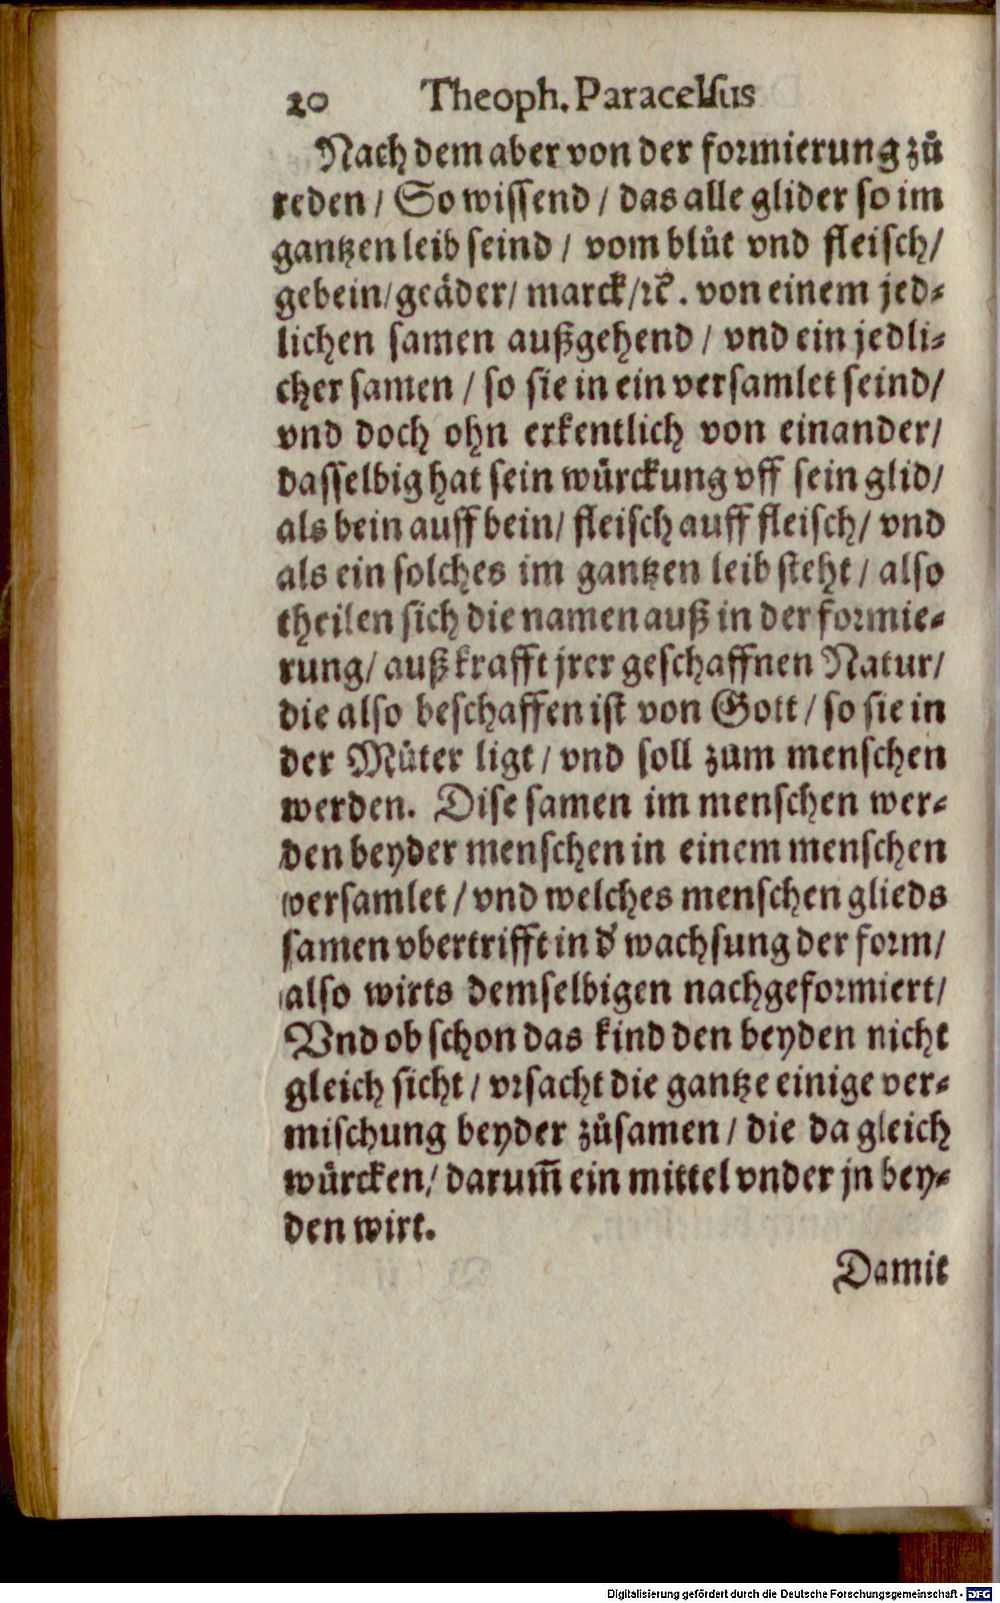 20 Theoph. Paracelsus
Nach dem aber von der formierung zů
reden / So wissend / das alle glider so im
gantzen leib seind / vom blůt vnd fleisch /
gebein / geäder / marck / ꝛc̃. von einem jed⸗
lichen samen außgehend / vnd ein jedli⸗
cher samen / so sie in ein versamlet seind /
vnd doch ohn erkentlich von einander /
dasselbig hat sein würckung vff sein glid /
als bein auff bein / fleisch auff fleisch / vnd
als ein solches im gantzen leib steht / also
theilen sich die namen auß in der formie⸗
rung / auß krafft jrer geschaffnen Natur /
die also beschaffen ist von Gott / so sie in
der Můter ligt / vnd soll zum menschen
werden. Dise samen im menschen wer⸗
den beyder menschen in einem menschen
versamlet / vnd welches menschen glieds
samen vbertrifft in d' wachsung der form /
also wirts demselbigen nachgeformiert /
Vnd ob schon das kind den beyden nicht
gleich sicht / vrsacht die gantze einige ver⸗
mischung beyder zůsamen / die da gleich
würcken / darum̃ ein mittel vnder jn bey⸗
den wirt.
Damit
Digitalisierung gefördert durch die Deutsche Forschungsgemeinschaft - DFG